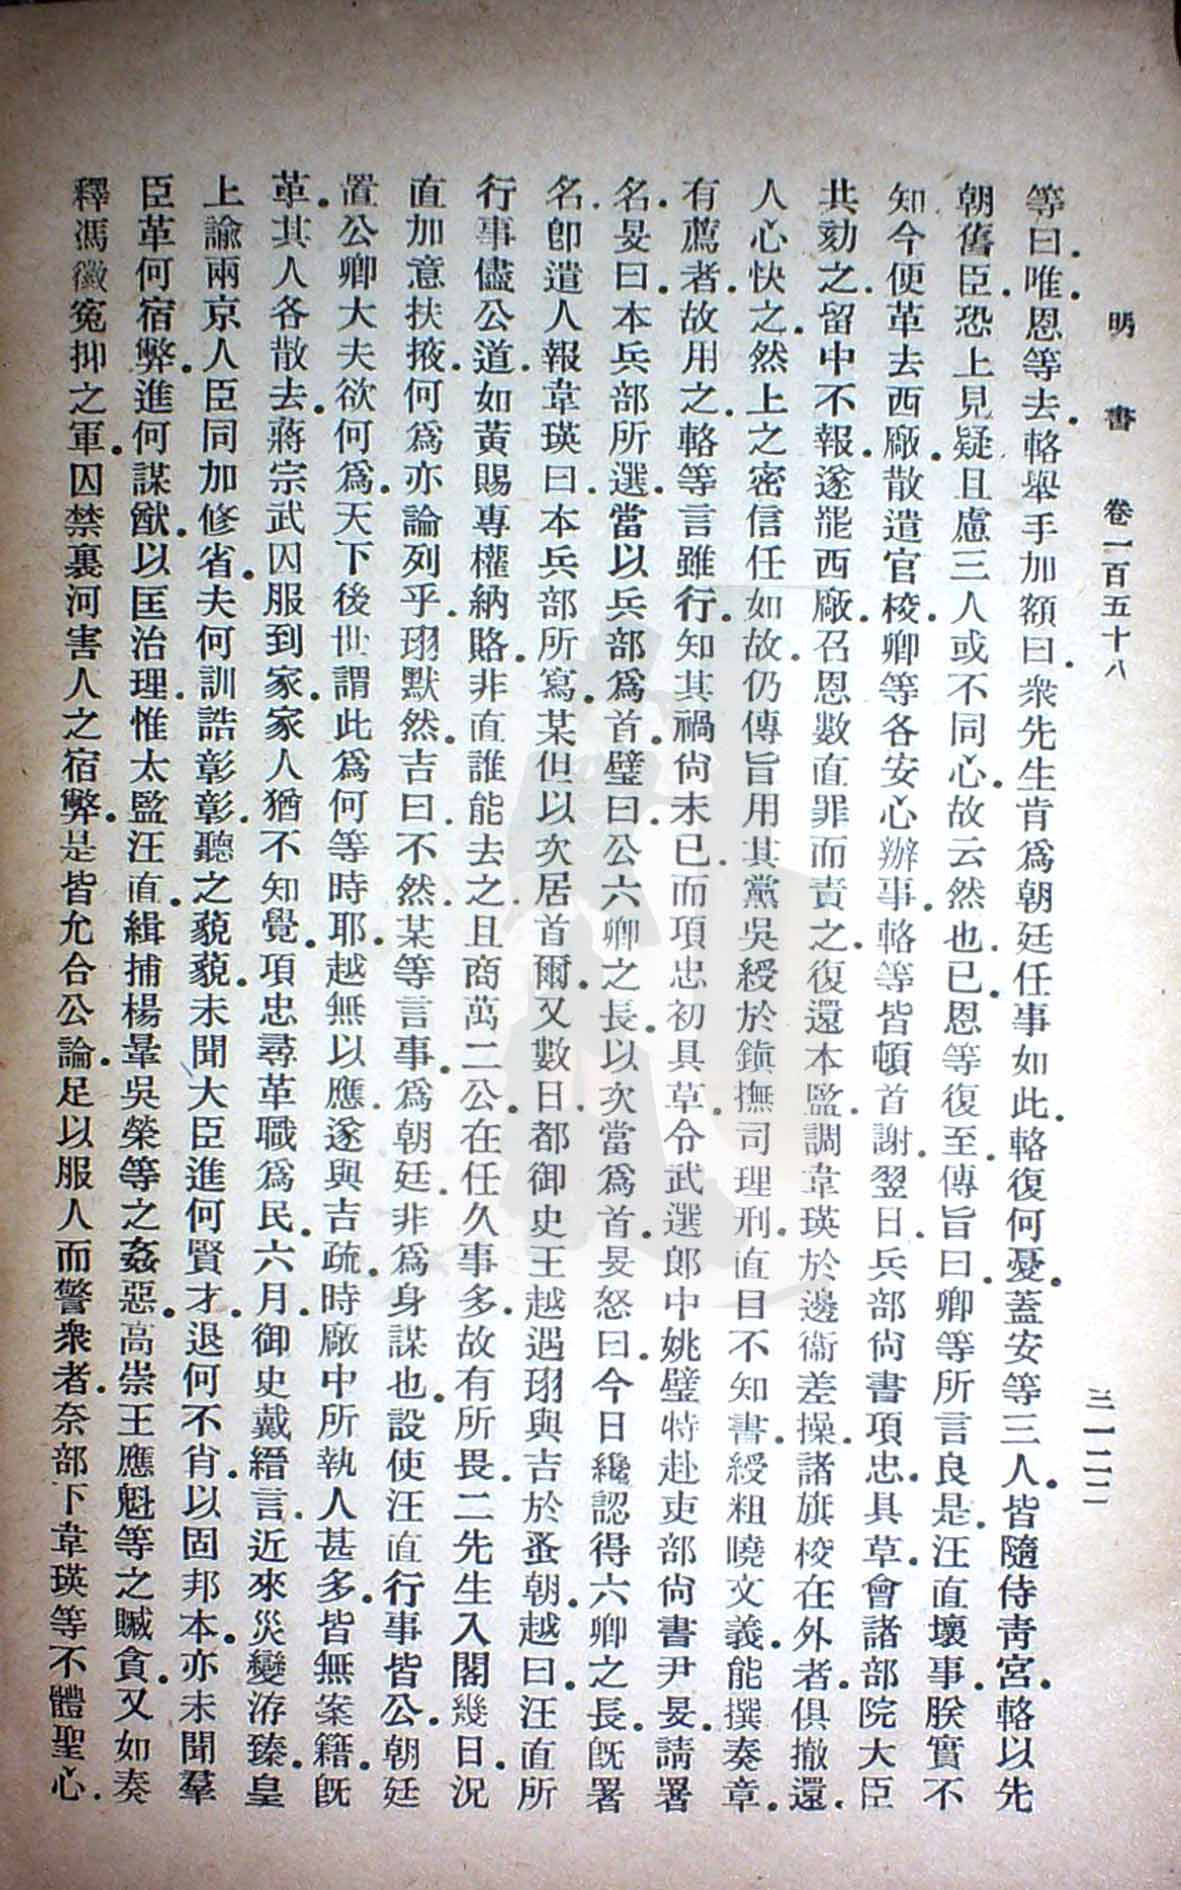 明書 卷一百五十八 三一二二
等曰唯恩等去輅舉手加額曰衆先生肯爲朝廷任事如此輅復何憂蓋安等三人皆隨侍靑宮輅以先
朝舊臣恐上見疑且慮三人或不同心故云然也已恩等復至傳旨曰卿等所言良是汪直壞事朕實不
知今便革去西廠散遣官校卿等各安心辦事輅等皆頓首謝翌日兵部尙書項忠具草會諸部院大臣
共劾之留中不報遂罷西廠召恩數直罪而責之復還本監調韋瑛於邊衞差操諸旗校在外者俱撤還
人心快之然上之密信任如故仍傳旨用其黨吳綬於鎭撫司理刑直目不知書綬粗曉文義能撰奏章
有薦者故用之輅等言雖行知其禍尙未已而項忠初具草令武選郞中姚璧特赴吏部尙書尹旻請署
名旻曰本兵部所選當以兵部爲首璧曰公六卿之長以次當爲首旻怒曰今日纔認得六卿之長旣署
名卽遣人報韋瑛曰本兵部所寫某但以次居首爾又數日都御史王越遇珝與吉於蚤朝越曰汪直所
行事儘公道如黃賜專權納賂非直誰能去之且商萬二公在任久事多故有所畏二先生入閣幾日況
直加意扶掖何爲亦論列乎珝默然吉曰不然某等言事爲朝廷非爲身謀也設使汪直行事皆公朝廷
置公卿大夫欲何爲天下後世謂此爲何等時耶越無以應遂與吉疏時廠中所執人甚多皆無案籍旣
革其人各散去蔣宗武囚服到家家人猶不知覺項忠尋革職爲民六月御史戴縉言近來災變洊臻皇
上諭兩京人臣同加修省夫何訓誥彰彰聽之藐藐未聞大臣進何賢才退何不肖以固邦本亦未聞羣
臣革何宿弊進何謀猷以匡治理惟太監汪直緝捕楊曅吳榮等之姦惡高崇王應魁等之贓貪又如奏
釋馮徽冤抑之軍囚禁裏河害人之宿弊是皆允合公論足以服人而警衆者奈部下韋瑛等不體聖心